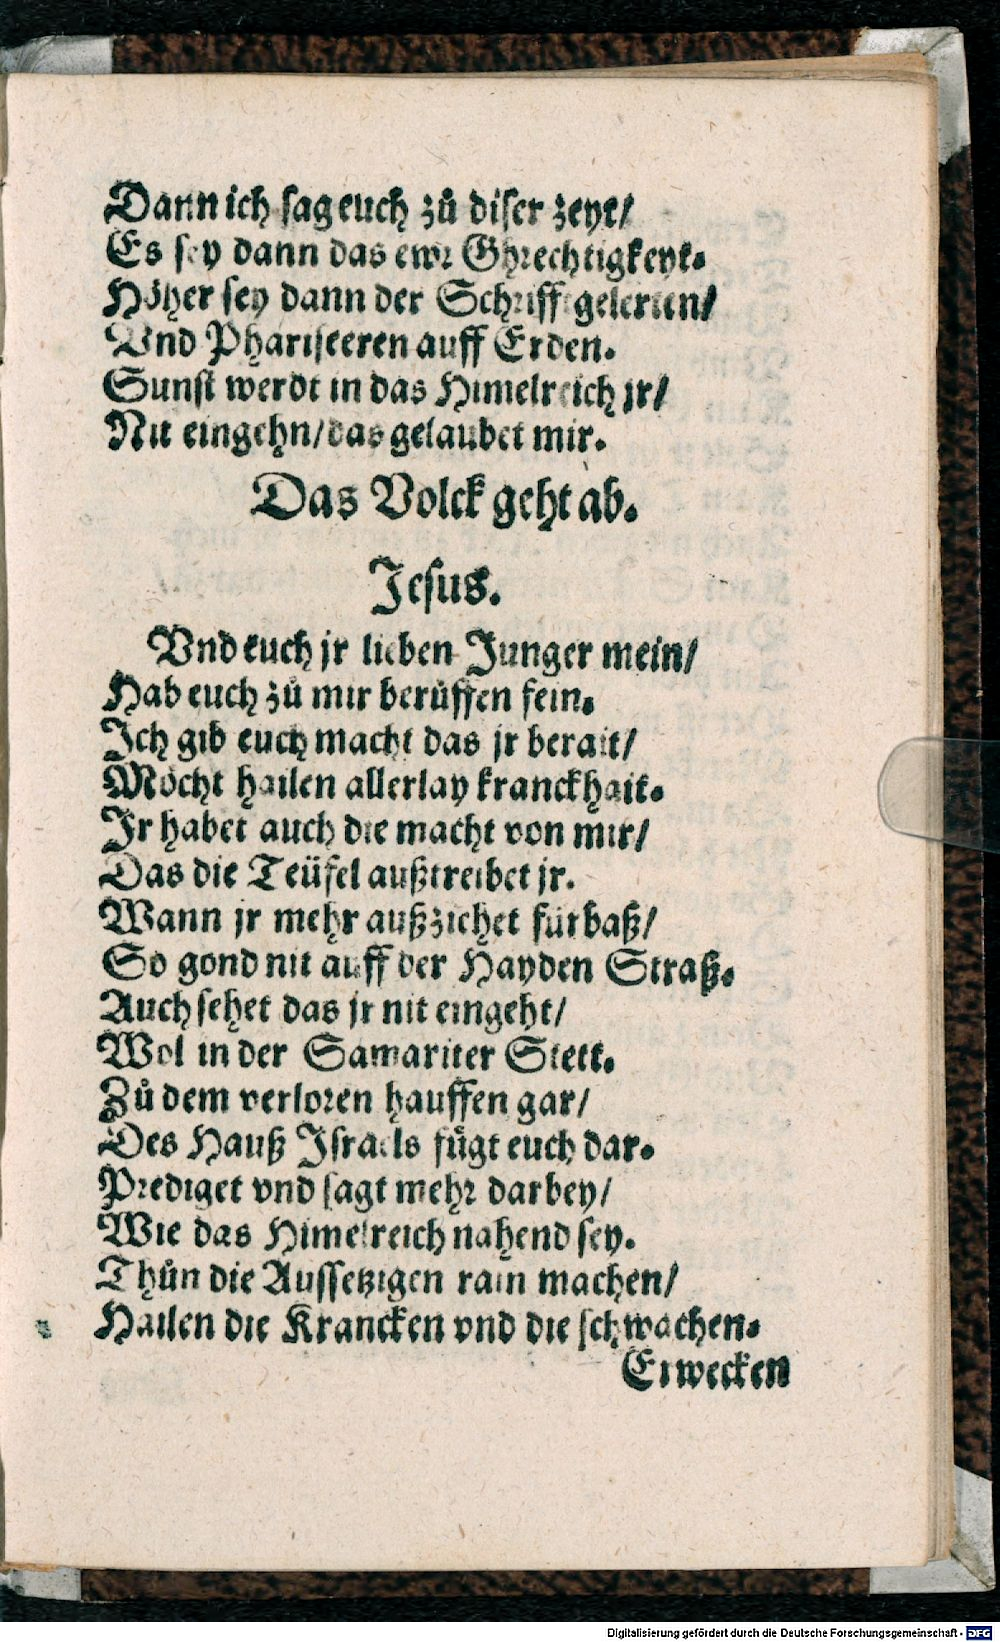 Dann ich sag euch zů diser zeyt/
Es sey dann das ewr Ghrechtigkeyt.
Höher sey dann der Schrifftgelerten/
Vnd Phariseeren auff Erden.
Sunst werdt in das Himelreich jr/
Nit eingehn/das gelaubet mir.
Das Volck geht ab.
Jesus.
Vnd euch jr lieben Junger mein/
Hab euch zů mir berůffen fein.
Ich gib euch macht das jr berait/
Möcht hailen allerlay kranckhait.
Ir habet auch die macht von mir/
Das die Teüfel außtreibet jr.
Wann jr mehr außziehet fürbaß/
So gond nit auff der Hayden Straß.
Auch sehet das jr nit eingeht/
Wol in der Samariter Stett.
Zů dem verloren hauffen gar/
Des Hauß Israels fůgt euch dar.
Prediget vnd sagt mehr darbey/
Wie das Himelreich nahend sey.
Thůn die Aussetzigen rain machen/
Hailen die Krancken vnd die schwachen.
Erwecken
Digitalisierung gefördert durch die Deutsche Forschungsgemeinschaft - DFG